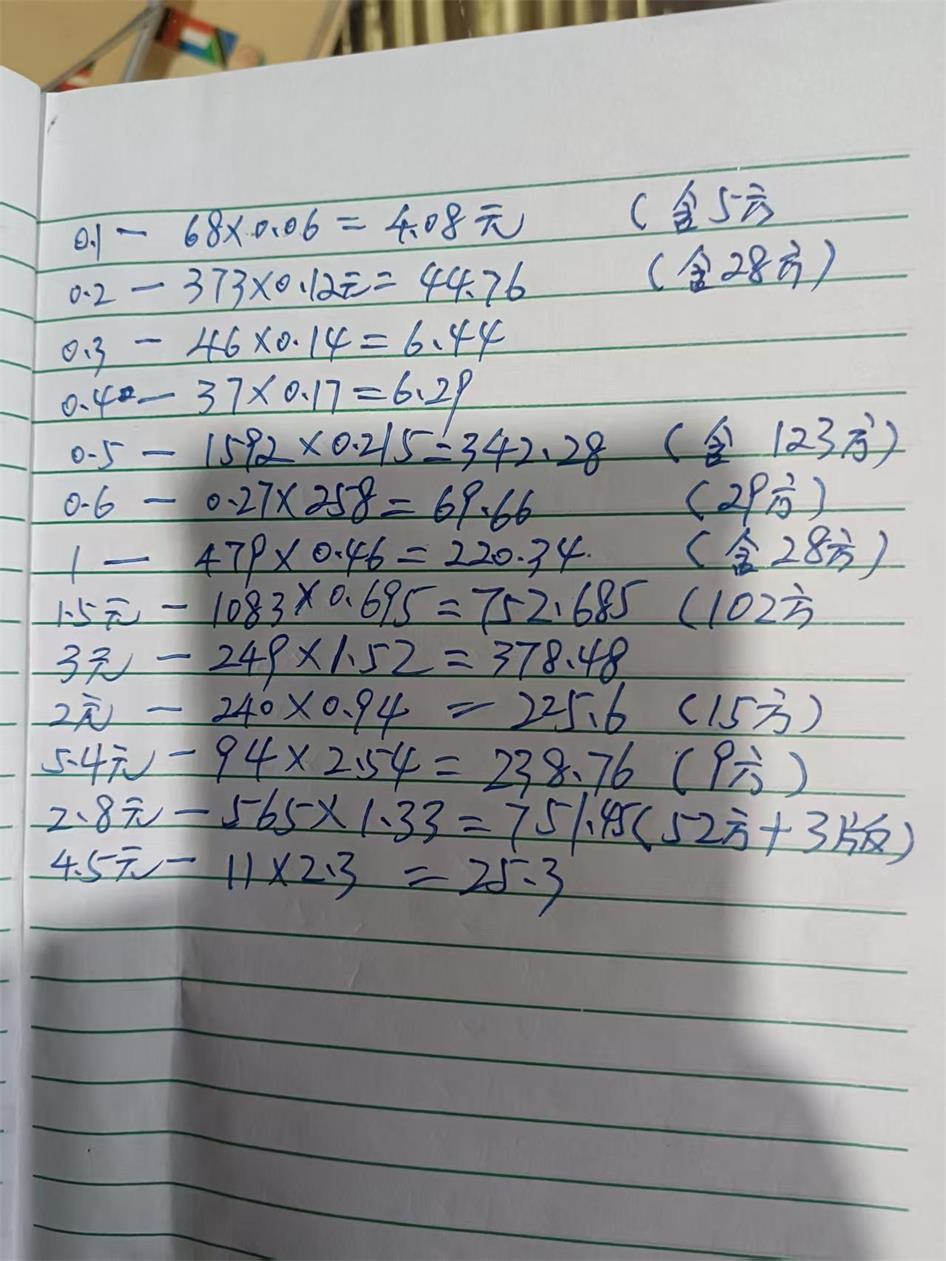 0.1 — 68×0.06=4.08元 (含5方
0.2 — 373×0.12元=44.76 (含28方)
0.3 — 46×0.14=6.44
0.4 — 37×0.17=6.29
0.5 — 1592×0.215=342.28 (含 123方)
0.6 — 0.27×258=69.66 (29方)
1 — 479×0.46=220.34. (含28方)
1.5元 — 1083×0.695=752.685 (102方
3元 — 249×1.52=378.48
2元 — 240×0.94 = 225.6 (15方)
5.4元 — 94×2.54=238.76 (9方)
2.8元 — 565×1.33=751.45(52方+3版)
4.5元 — 11×2.3 =25.3